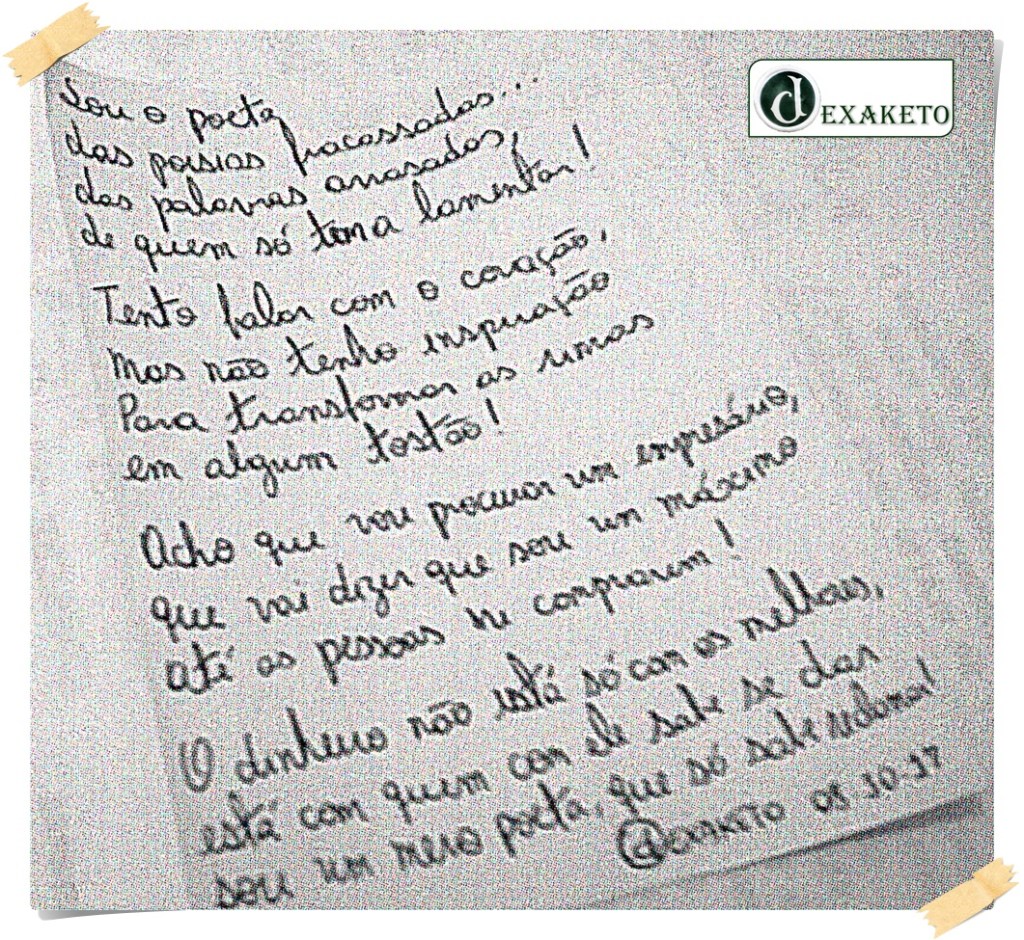 dEXAKETO
Sou o poeta
das poesias fracassadas...
das palavras arrasadas,
de quem só tem a lamentar!
Tento falar com o coração,
Mas não tenho inspiração
Para transformar as rimas
em algum tostão!
Acho que vou procurar um empresário,
que vai dizer que sou um máximo
até as pessoas me comprarem!
O dinheiro não está só com os melhores,
está com quem com ele sabe se dar
sou um mero poeta, que só sabe
@EXAKETO 05-10-17